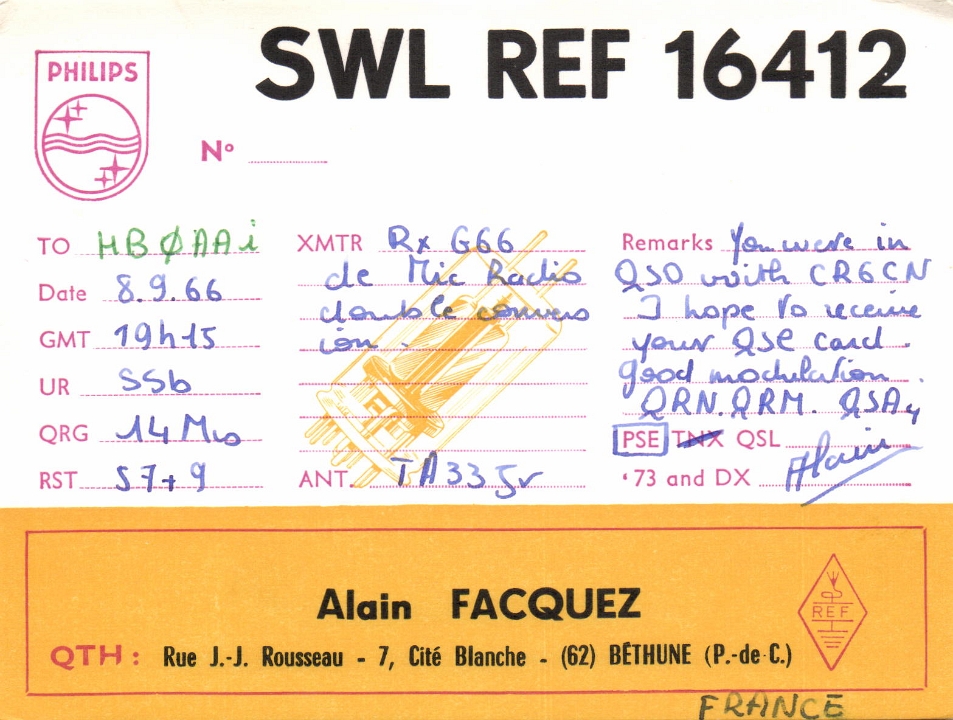 SWL REF 16412
PHILIPS
Nº
TO HBØAAi
Date 8.9.66
GMT 19h15
UR SSb
QRG 14 Mcs
RST S7+9
XMTR Rx G66
de Mic Radio
double convers
ion.
ANT. TA33Jr
Remarks You were in
QSO with CR6CN
I hope to receive
your QSL card.
good modulation.
QRN. QRM. QSA4
PSE TNX QSL
'73 and DX Alain
Alain FACQUEZ
REF
QTH: Rue J.-J. Rousseau - 7, Cité Blanche - (62) BÉTHUNE (P.-de-C.)
FRANCE